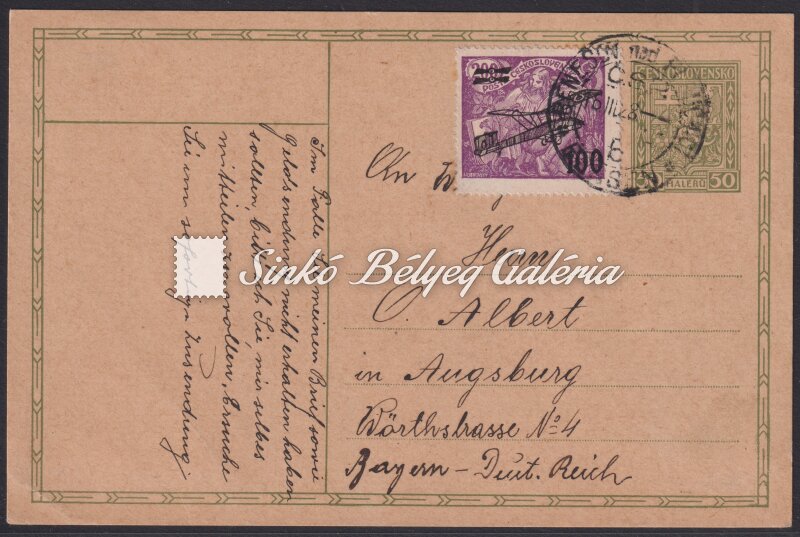 200
POSTA ČESKOSLOVENSKÁ
100
ČESKOSLOVENSKO
HALÉŘŮ 50
An
Herrn
O. Albert
in Augsburg
Wörthstrasse No 4
Bayern – Deut. Reich
Im Falle Sie meinen Brief sowie
Geldsendung nicht erhalten haben
sollten, bitte ich Sie, mir selbes
mitteilen zu wollen, Ersuche
Sie um sofortige Zusendung.
Sinkó Bélyeg Galéria